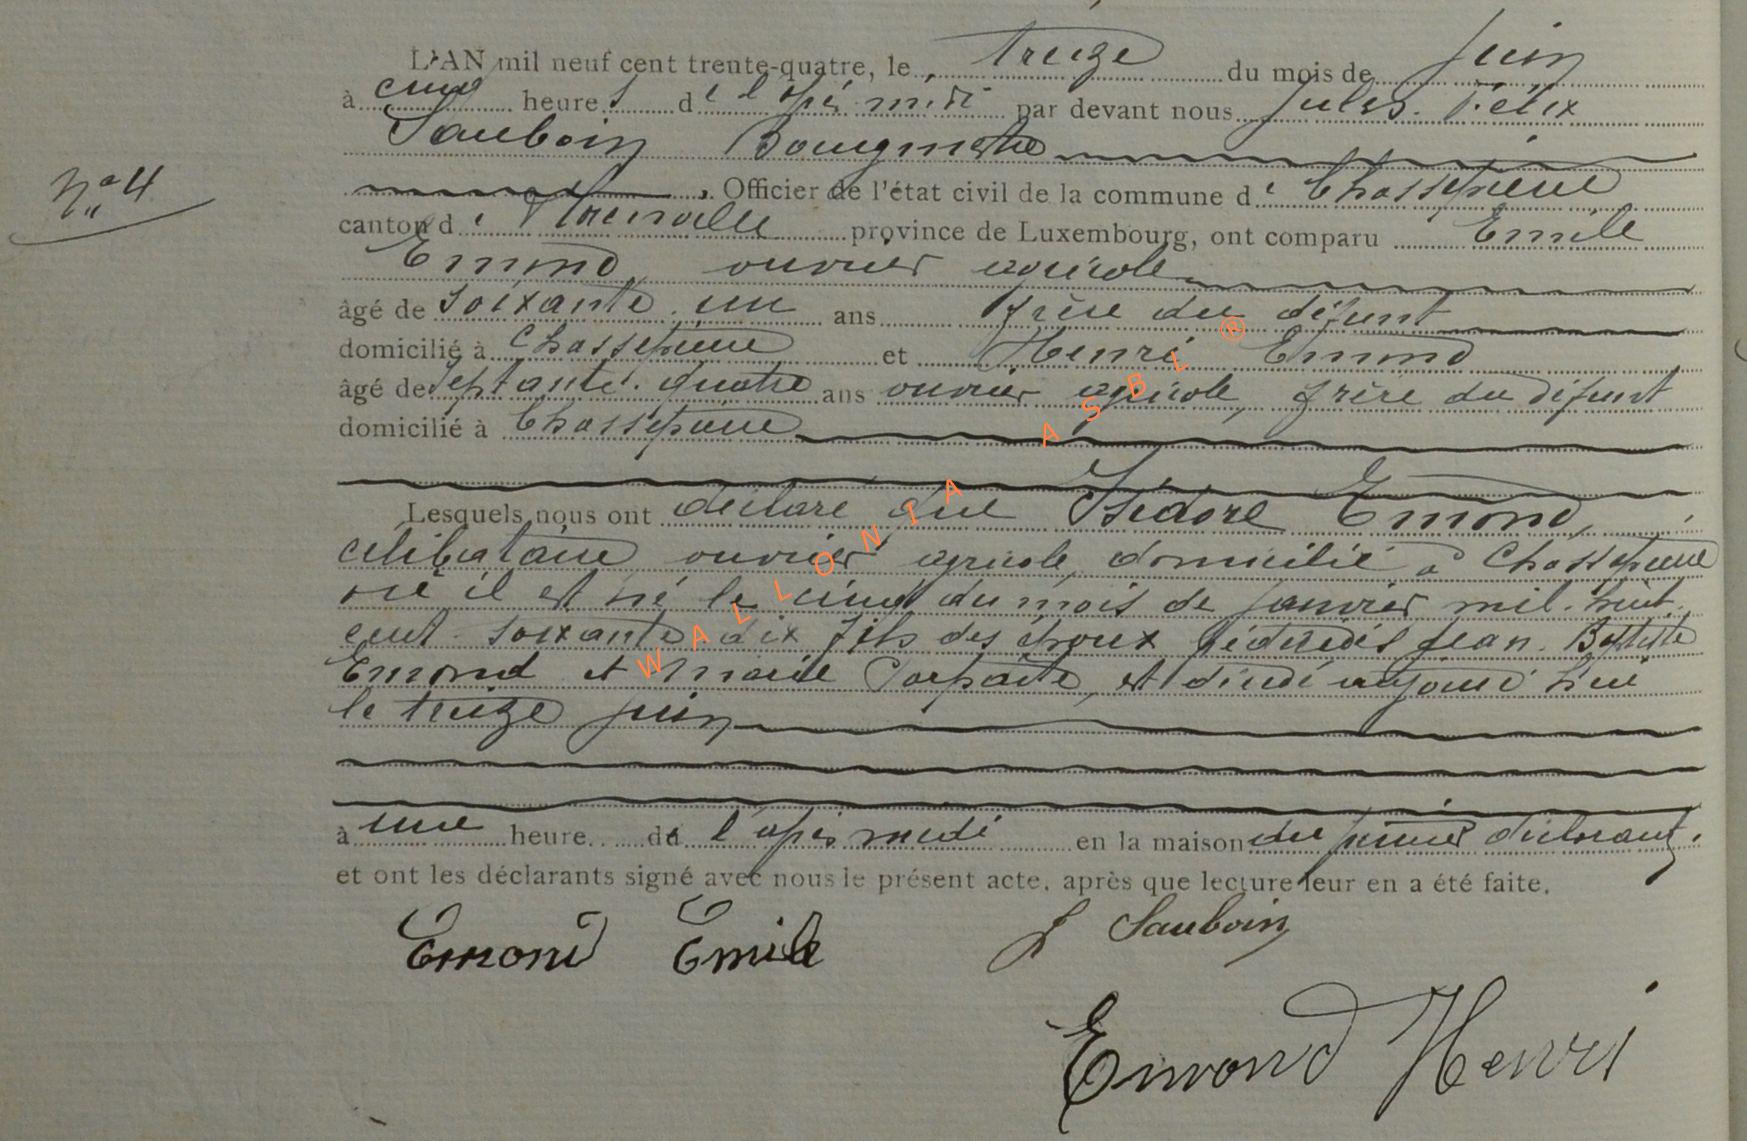 L'AN mil neuf cent trente-quatre, le treize du mois de juin
à cinq heures de l'après midi par devant nous Jules Félix
Sauboin Bourgmestre
N° 4
Officier de l'état civil de la commune de Chassepierre
canton de Florenville province de Luxembourg, ont comparu Emile
Emond, ouvrier agricole
âgé de soixante un ans frère du défunt
domicilié à Chassepierre et Henri Emond
âgé de septante quatre ans ouvrier agricole, frère du défunt
domicilié à Chassepierre
Lesquels nous ont déclaré que Isidore Emond,
célibataire ouvrier agricole, domicilié à Chassepierre
où il est né le cinq du mois de janvier mil huit
cent soixante dix fils des époux décédés Jean Baptiste
Emond et Marie Parfaite, est décédé aujourd'hui
le treize juin
à une heure de l'après midi en la maison du premier déclarant,
et ont les déclarants signé avec nous le présent acte, après que lecture leur en a été faite.
Emond Emile J Sauboin
Emond Henri
WALLONIA ASBL ®